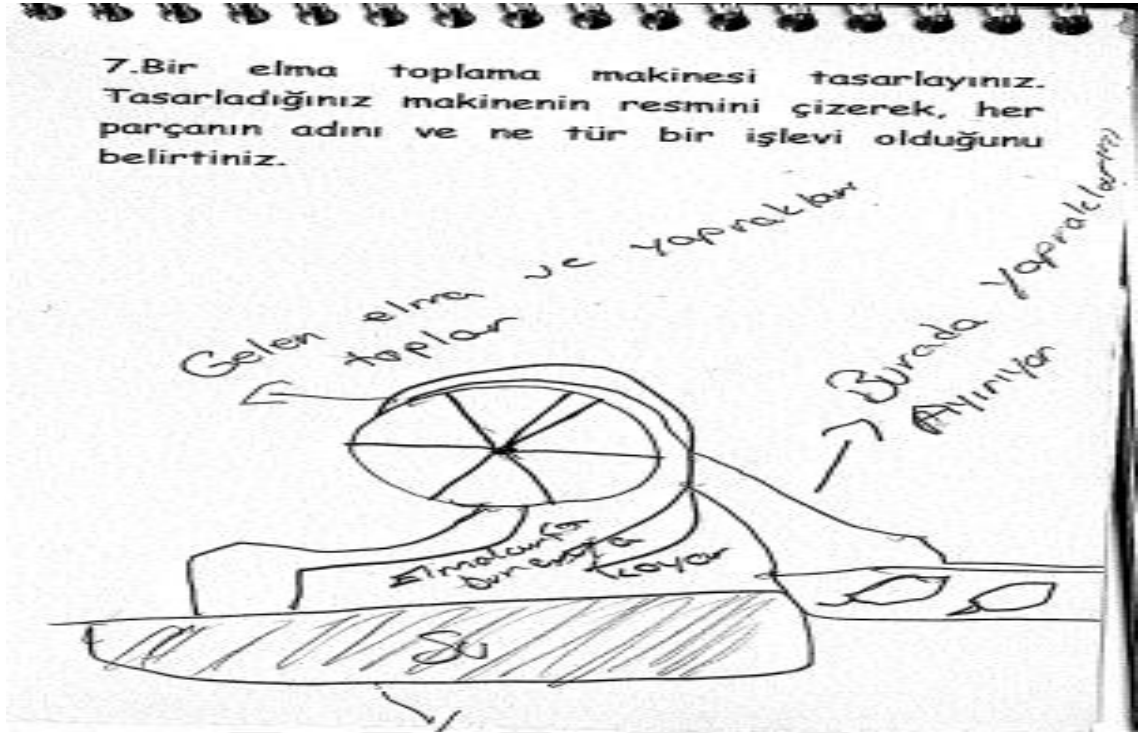 7.Bir elma toplama makinesi tasarlayınız.
Tasarladığınız makinenin resmini çizerek, her
parçanın adını ve ne tür bir işlevi olduğunu
belirtiniz.
Gelen elma ve yaprakları
toplar
Burada yapraklar
Ayırıyor
Elmalar
koyar
Su